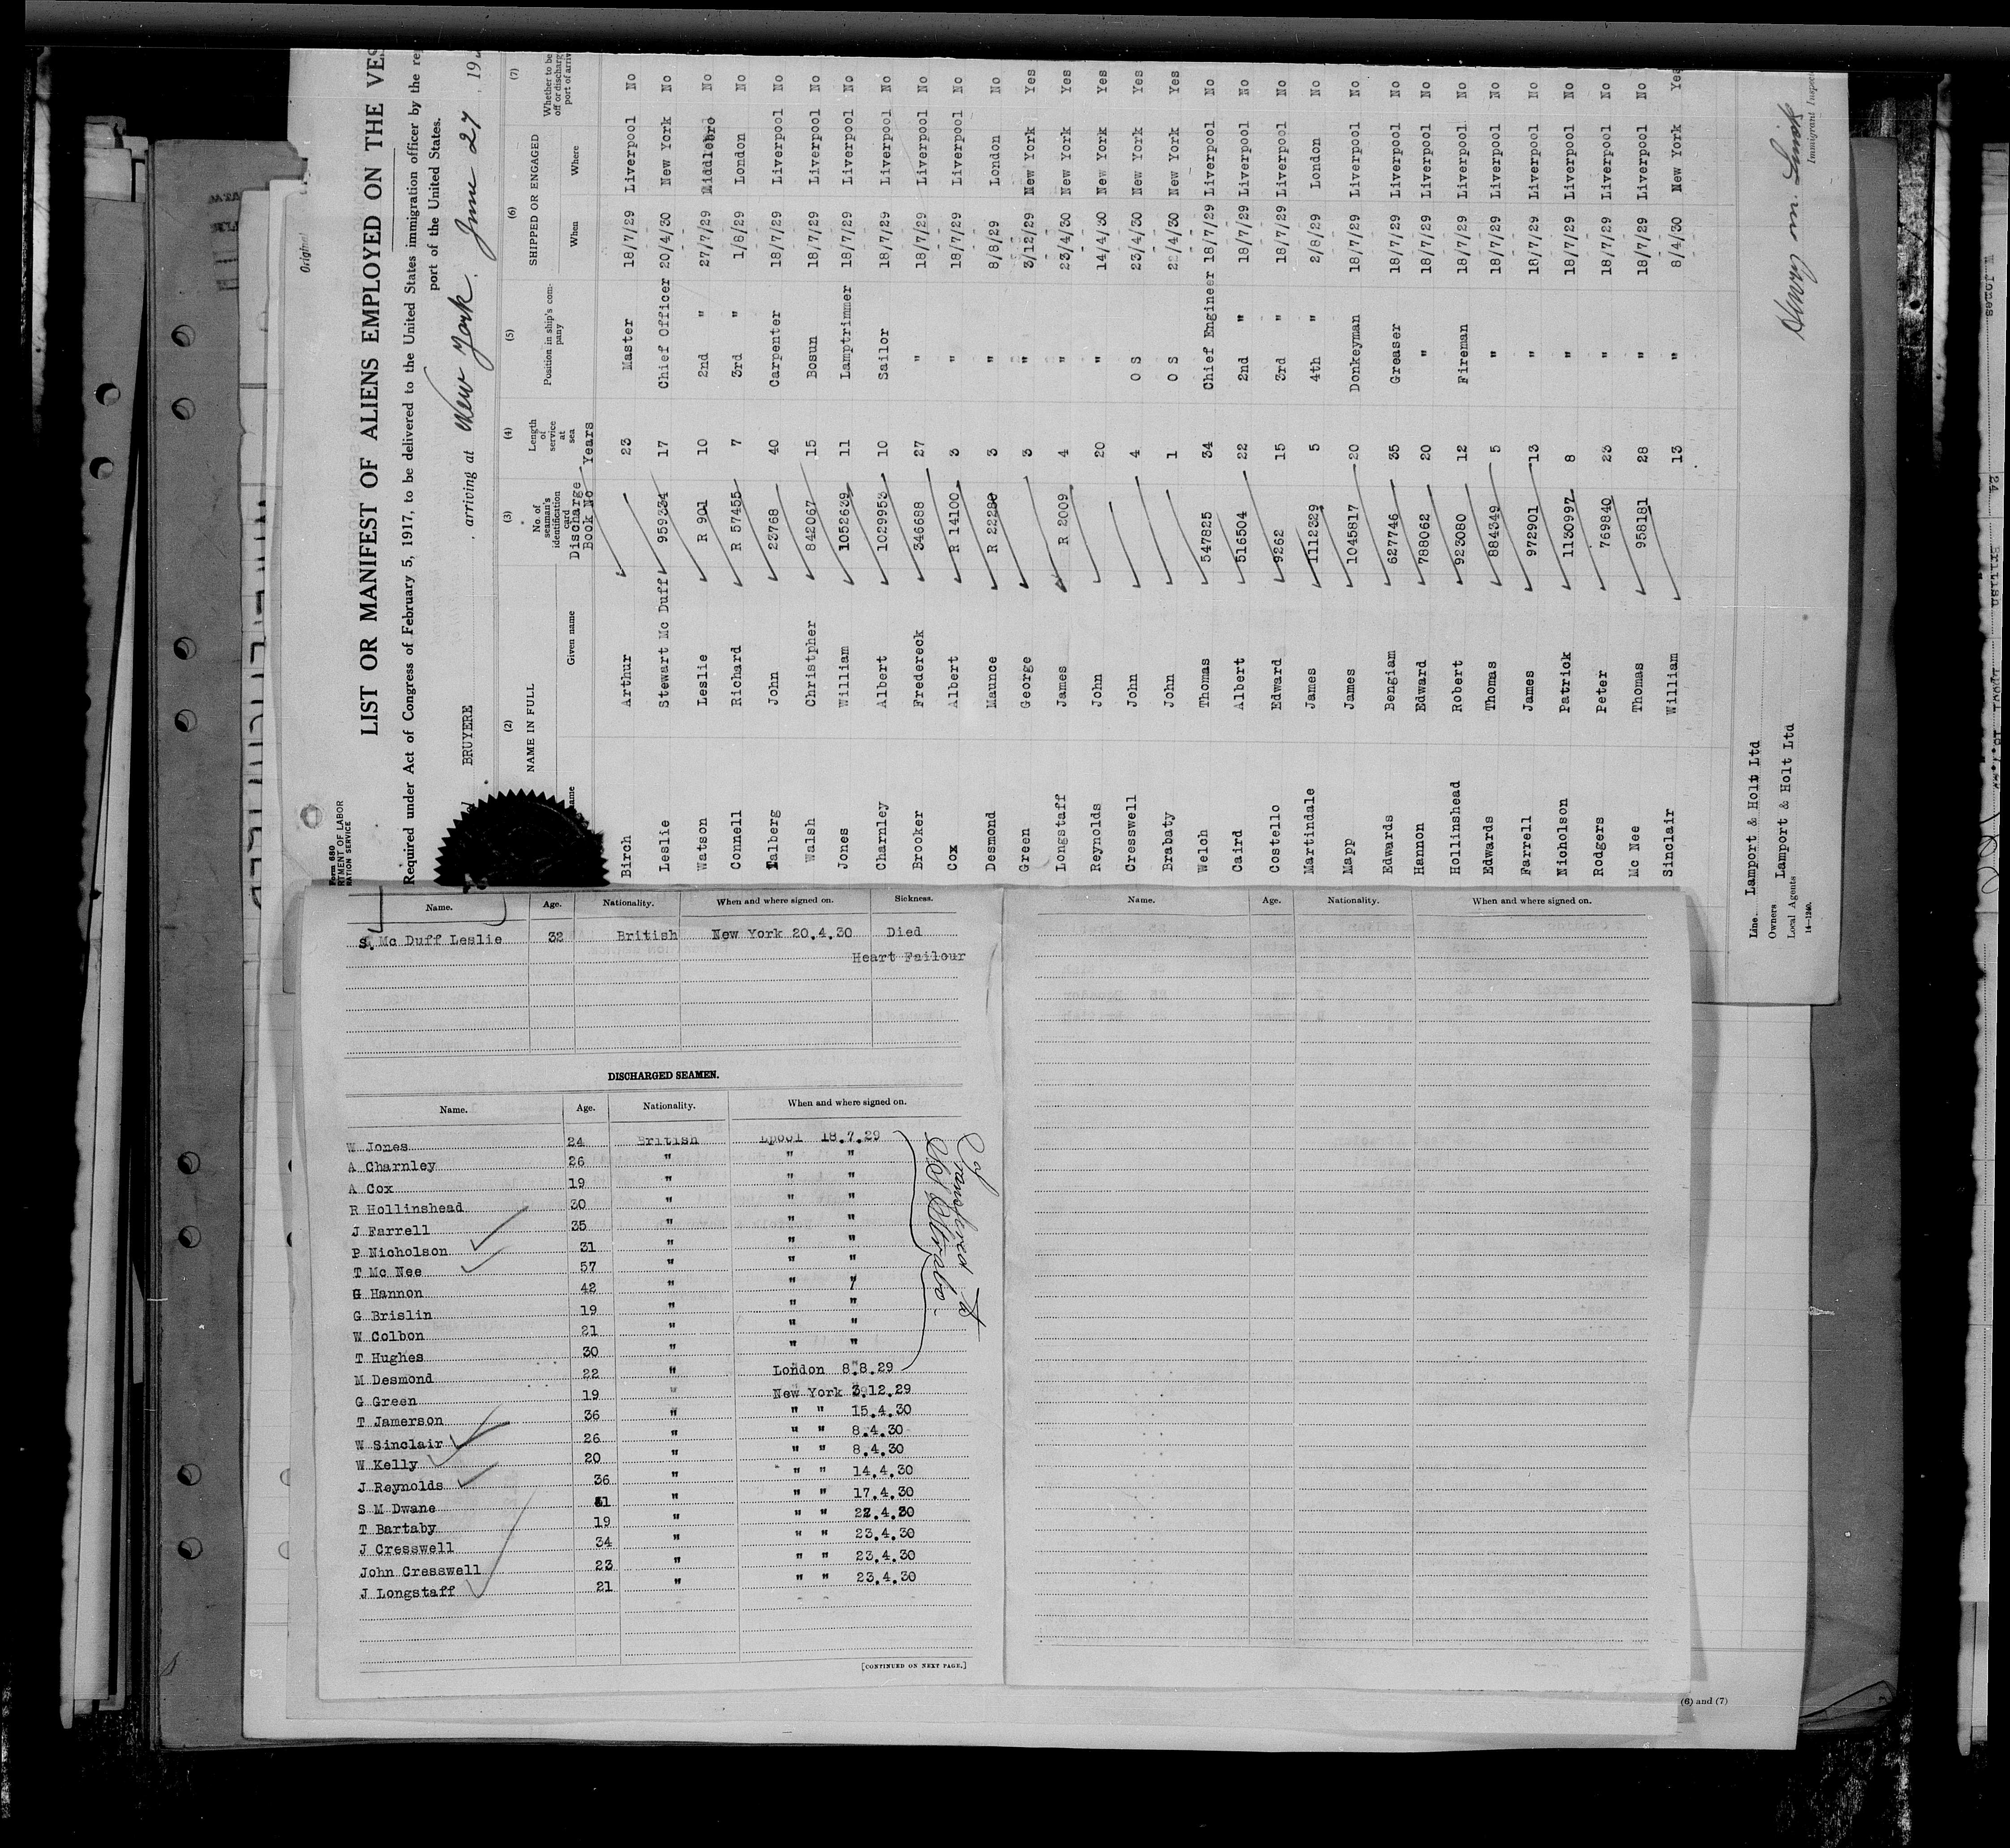 Original
Form 680
RTMENT OF LABOR
RATION SERVICE
LIST OR MANIFEST OF ALIENS EMPLOYED ON THE VES
Required under Act of Congress of February 5, 1917, to be delivered to the United States immigration officer by the re
port of the United States.
BRUYERE , arriving at New York. June 27, 19
(2) (3) (4) (5) (6) (7)
NAME IN FULL No. of seaman's identification card Length of service at sea Position in ship's company SHIPPED OR ENGAGED Whether to be
off or discharg
port of arriv
ame Given name Discharge Book No Years When Where
Birch Arthur 23 Master 18/7/29 Liverpool No
Leslie Stewart Mc Duff 959334 17 Chief Officer 20/4/30 New York No
Watson Leslie R 901 10 2nd " 27/7/29 Middlebro No
Connell Richard R 57455 7 3rd " 1/8/29 London No
Talberg John 23768 40 Carpenter 18/7/29 Liverpool No
Walsh Christpher 842067 15 Bosun 18/7/29 Liverpool No
Jones William 1052639 11 Lamptrimmer 18/7/29 Liverpool No
Charnley Albert 1029953 10 Sailor 18/7/29 Liverpool No
Brooker Fredereck 346688 27 " 18/7/29 Liverpool No
Cox Albert R 14100 3 " 18/7/29 Liverpool No
Desmond Maunce R 22280 3 " 8/8/29 London No
Green George 3 " 3/12/29 New York Yes
Longstaff James R 2009 4 " 23/4/30 New York Yes
Reynolds John 20 " 14/4/30 New York Yes
Cresswell John 4 O S 23/4/30 New York Yes
Brabaty John 1 O S 22/4/30 New York Yes
Welch Thomas 547825 34 Chief Engineer 18/7/29 Liverpool No
Caird Albert 516504 22 2nd " 18/7/29 Liverpool No
Costello Edward 9262 15 3rd " 18/7/29 Liverpool No
Martindale James 1112329 5 4th " 2/8/29 London No
Mapp James 1045817 20 Donkeyman 18/7/29 Liverpool No
Edwards Bengiam 627746 35 Greaser 18/7/29 Liverpool No
Hannon Edward 788062 20 " 18/7/29 Liverpool No
Hollinshead Robert 923080 12 Fireman 18/7/29 Liverpool No
Edwards Thomas 884349 5 " 18/7/29 Liverpool No
Farrell James 972901 13 " 18/7/29 Liverpool No
Nicholson Patrick 1130997 8 " 18/7/29 Liverpool No
Rodgers Peter 769840 23 " 18/7/29 Liverpool No
Mc Nee Thomas 958181 28 " 18/7/29 Liverpool No
Sinclair William 13 " 8/4/30 New York Yes
Line Lamport & Holt Ltd
Owners
Local Agents Lamport & Holt Ltd
14—1240.
Immigrant Inspect
Name. Age. Nationality. When and where signed on. Sickness.
S. Mc Duff Leslie 32 British New York 20.4.30 Died
Heart Failour
DISCHARGED SEAMEN.
Name. Age. Nationality. When and where signed on.
W Jones 24 British Lpool 18.7.29
A Charnley 26 " " "
A Cox 19 " " "
R Hollinshead 30 " " "
J Farrell 35 " " "
P Nicholson 31 " " "
T Mc Nee 57 " " "
G Hannon 42 " " "
G Brislin 19 " " "
W Colbon 21 " " "
T Hughes 30 " " "
M Desmond 22 " London 8.8.29
G Green 19 " New York 3.12.29
T Jamerson 36 " " " 15.4.30
W Sinclair 26 " " " 8.4.30
W Kelly 20 " " " 8.4.30
J Reynolds 36 " " " 14.4.30
S M Dwane 41 " " " 17.4.30
T Bartaby 19 " " " 22.4.30
J Cresswell 34 " " " 23.4.30
John Cresswell 23 " " " 23.4.30
J Longstaff 21 " " " 23.4.30
Transfered to
[CONTINUED ON NEXT PAGE.]
Name. Age. Nationality. When and where signed on.
(6) and (7)